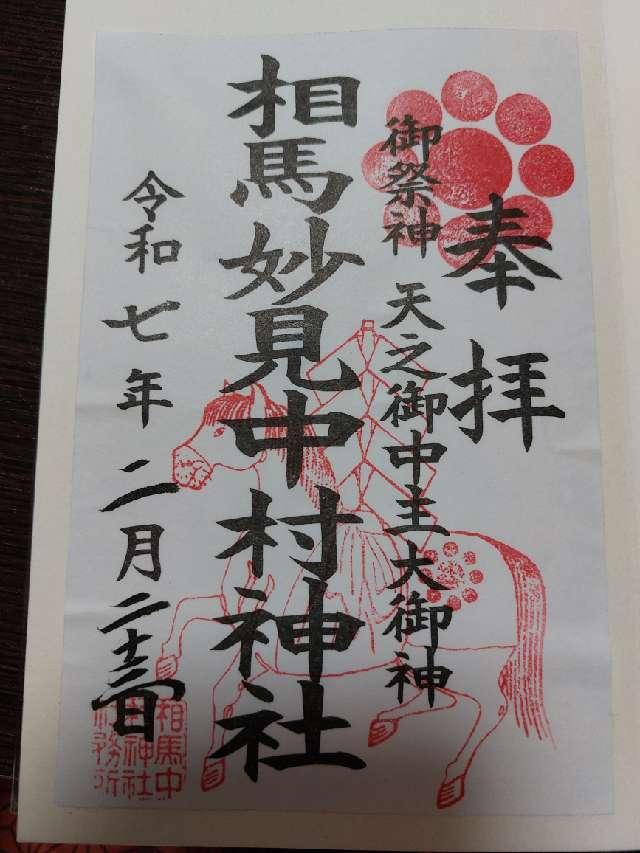 奉拝
御祭神 天之御中主大御神
相馬妙見中村神社
令和七年二月二十三日
相馬中
村神社
社務所